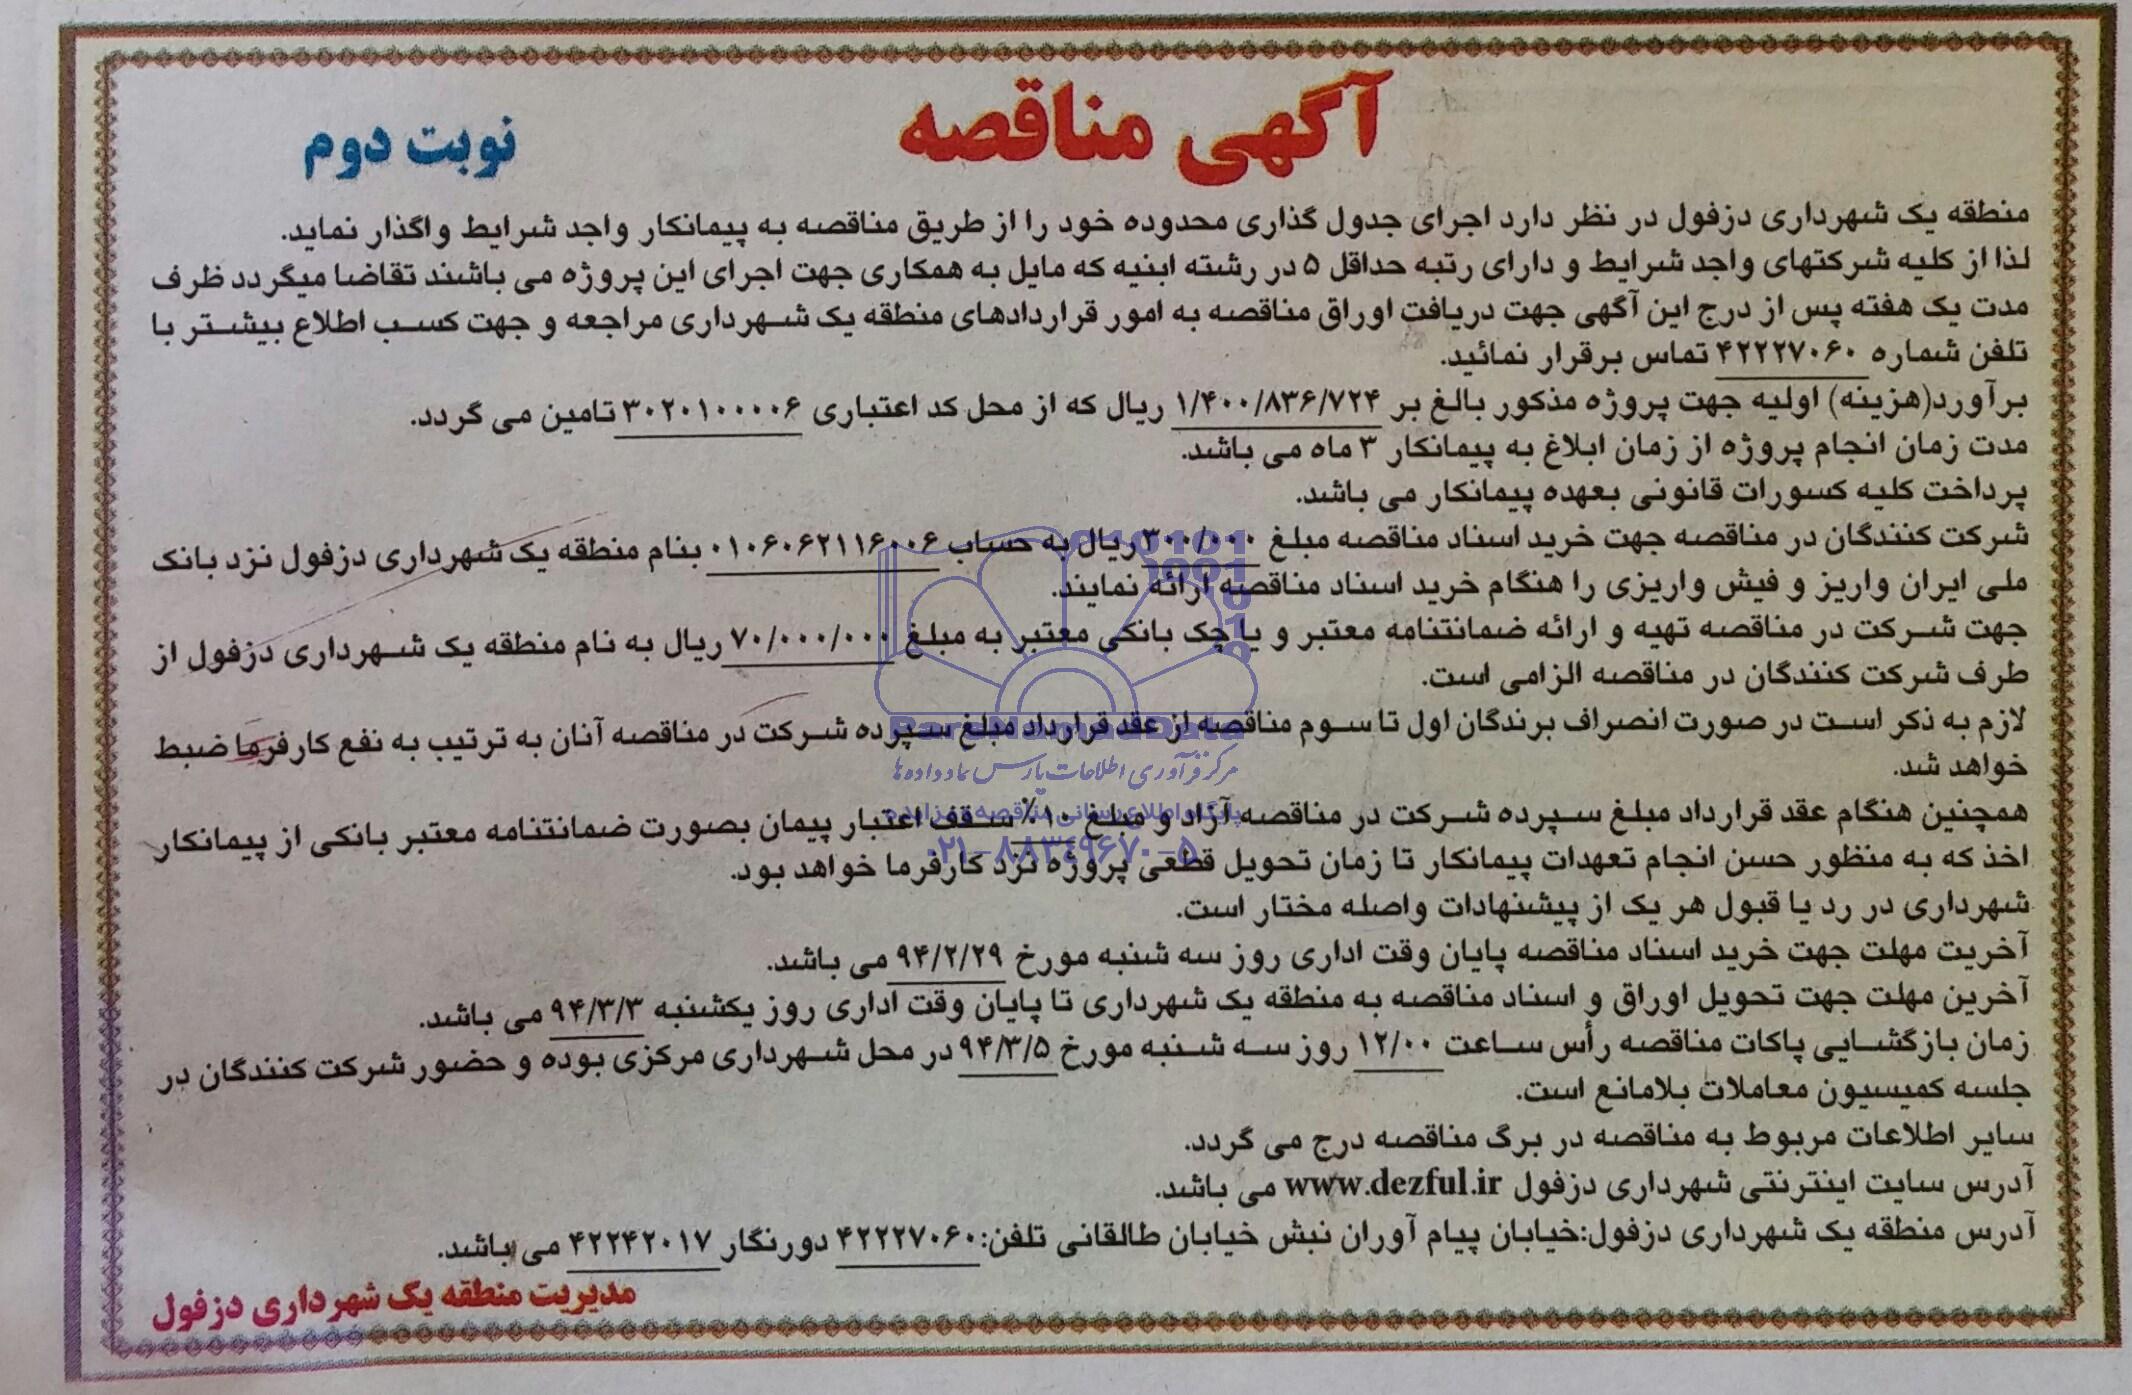 آگهی مناقصه
نوبت دوم
منطقه یک شهرداری دزفول در نظر دارد اجرای جدول گذاری محدوده خود را از طریق مناقصه به پیمانکار واجد شرایط واگذار نماید.
لذا از کلیه شرکتهای واجد شرایط و دارای رتبه حداقل ۵ در رشته ابنیه که مایل به همکاری جهت اجرای این پروژه می باشند تقاضا میگردد ظرف
مدت یک هفته پس از درج این آگهی جهت دریافت اوراق مناقصه به امور قراردادهای منطقه یک شهرداری مراجعه و جهت کسب اطلاع بیشتر با
تلفن شماره ۴۲۲۲۷۰۶۰ تماس برقرار نمائید.
برآورد(هزینه) اولیه جهت پروژه مذکور بالغ بر ۱/۴۰۰/۸۳۶/۷۲۴ ریال که از محل کد اعتباری ۳۰۲۰۱۰۰۰۰۶ تامین می گردد.
مدت زمان انجام پروژه از زمان ابلاغ به پیمانکار ۳ ماه می باشد.
پرداخت کلیه کسورات قانونی بعهده پیمانکار می باشد.
شرکت کنندگان در مناقصه جهت خرید اسناد مناقصه مبلغ ۳۰۰/۰۰۰ ریال به حساب ۰۱۰۶۰۶۲۱۱۶۰۰۶ بنام منطقه یک شهرداری دزفول نزد بانک
ملی ایران واریز و فیش واریزی را هنگام خرید اسناد مناقصه ارائه نمایند.
جهت شرکت در مناقصه تهیه و ارائه ضمانتنامه معتبر و یا چک بانکی معتبر به مبلغ ۷۰/۰۰۰/۰۰۰ ریال به نام منطقه یک شهرداری دزفول از
طرف شرکت کنندگان در مناقصه الزامی است.
لازم به ذکر است در صورت انصراف برندگان اول تا سوم مناقصه از عقد قرارداد مبلغ سپرده شرکت در مناقصه آنان به ترتیب به نفع کارفرما ضبط
خواهد شد.
همچنین هنگام عقد قرارداد مبلغ سپرده شرکت در مناقصه آزاد و مبلغ ۱۰٪ سقف اعتبار پیمان بصورت ضمانتنامه معتبر بانکی از پیمانکار
اخذ که به منظور حسن انجام تعهدات پیمانکار تا زمان تحویل قطعی پروژه نزد کارفرما خواهد بود.
شهرداری در رد یا قبول هر یک از پیشنهادات واصله مختار است.
آخریت مهلت جهت خرید اسناد مناقصه پایان وقت اداری روز سه شنبه مورخ ۹۴/۲/۲۹ می باشد.
آخرین مهلت جهت تحویل اوراق و اسناد مناقصه به منطقه یک شهرداری تا پایان وقت اداری روز یکشنبه ۹۴/۳/۳ می باشد.
زمان بازگشایی پاکات مناقصه رأس ساعت ۱۲/۰۰ روز سه شنبه مورخ ۹۴/۳/۵ در محل شهرداری مرکزی بوده و حضور شرکت کنندگان در
جلسه کمیسیون معاملات بلامانع است.
سایر اطلاعات مربوط به مناقصه در برگ مناقصه درج می گردد.
آدرس سایت اینترنتی شهرداری دزفول www.dezful.ir می باشد.
آدرس منطقه یک شهرداری دزفول:خیابان پیام آوران نبش خیابان طالقانی تلفن:۴۲۲۲۷۰۶۰ دورنگار ۴۲۲۴۲۰۱۷ می باشد.
مدیریت منطقه یک شهرداری دزفول
مرکز فرآوری اطلاعات پارس نماد داده ها
پایگاه اطلاع رسانی مناقصه و مزایده
۰۲۱-۸۸۳۴۹۶۷۰-۵